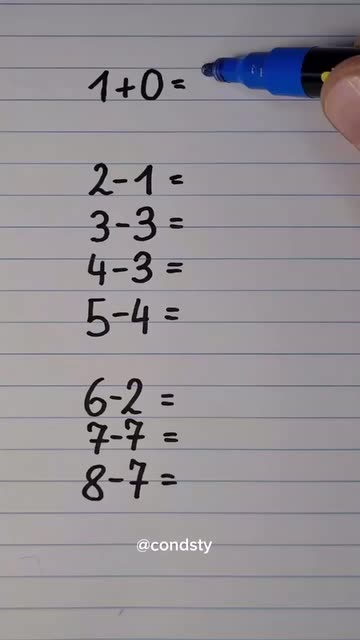 1+0=
2-1=
3-3=
4-3=
5-4=
6-2=
7-7=
8-7=
@condsty